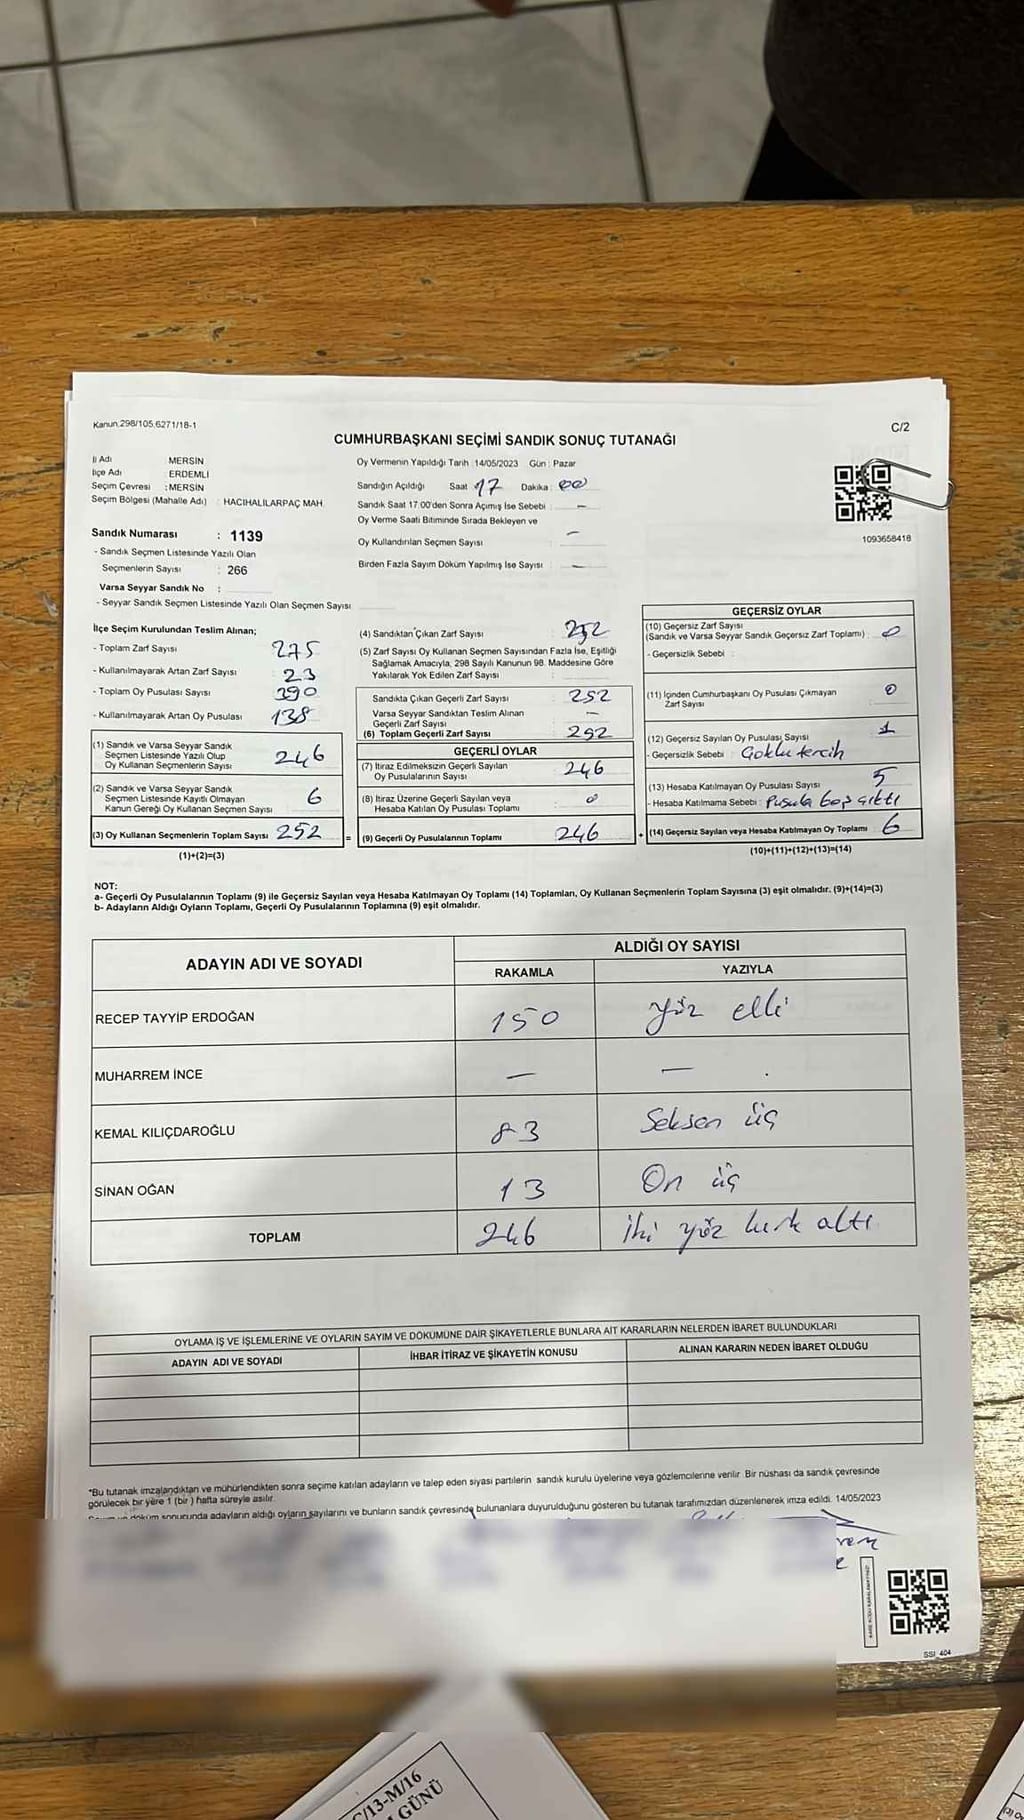 Kanun.298/105.6271/18-1
C/2
CUMHURBAŞKANI SEÇİMİ SANDIK SONUÇ TUTANAĞI
İl Adı : MERSİN
İlçe Adı : ERDEMLİ
Seçim Çevresi : MERSİN
Seçim Bölgesi (Mahalle Adı) : HACIHALİLARPAÇ MAH.
Sandık Numarası : 1139
- Sandık Seçmen Listesinde Yazılı Olan
Seçmenlerin Sayısı : 266
Varsa Seyyar Sandık No :
- Seyyar Sandık Seçmen Listesinde Yazılı Olan Seçmen Sayısı
Oy Vermenin Yapıldığı Tarih : 14/05/2023 Gün : Pazar
Sandığın Açıldığı Saat 17 Dakika : 00
Sandık Saat 17.00'den Sonra Açımış İse Sebebi : -
Oy Verme Saati Bitiminde Sırada Bekleyen ve
Oy Kullandırılan Seçmen Sayısı : -
Birden Fazla Sayım Döküm Yapılmış İse Sayısı : -
1093658418
İlçe Seçim Kurulundan Teslim Alınan;
- Toplam Zarf Sayısı : 275
- Kullanılmayarak Artan Zarf Sayısı : 23
- Toplam Oy Pusulası Sayısı : 390
- Kullanılmayarak Artan Oy Pusulası : 138
(1) Sandık ve Varsa Seyyar Sandık
Seçmen Listesinde Yazılı Olup
Oy Kullanan Seçmenlerin Sayısı : 246
(2) Sandık ve Varsa Seyyar Sandık
Seçmen Listesinde Kayıtlı Olmayan
Kanun Gereği Oy Kullanan Seçmen Sayısı : 6
(3) Oy Kullanan Seçmenlerin Toplam Sayısı : 252
(1)+(2)=(3)
(4) Sandıktan Çıkan Zarf Sayısı : 252
(5) Zarf Sayısı Oy Kullanan Seçmen Sayısından Fazla İse, Eşitliği
Sağlamak Amacıyla, 298 Sayılı Kanunun 98. Maddesine Göre
Yakılarak Yok Edilen Zarf Sayısı :
Sandıkta Çıkan Geçerli Zarf Sayısı : 252
Varsa Seyyar Sandıktan Teslim Alınan
Geçerli Zarf Sayısı : -
(6) Toplam Geçerli Zarf Sayısı : 252
GEÇERLİ OYLAR
(7) İtiraz Edilmeksizin Geçerli Sayılan
Oy Pusulalarının Sayısı : 246
(8) İtiraz Üzerine Geçerli Sayılan veya
Hesaba Katılan Oy Pusulası Toplamı : 0
= (9) Geçerli Oy Pusulalarının Toplamı : 246 +
GEÇERSİZ OYLAR
(10) Geçersiz Zarf Sayısı
(Sandık ve Varsa Seyyar Sandık Geçersiz Zarf Toplamı) : 0
- Geçersizlik Sebebi :
(11) İçinden Cumhurbaşkanı Oy Pusulası Çıkmayan
Zarf Sayısı : 0
(12) Geçersiz Sayılan Oy Pusulası Sayısı : 1
- Geçersizlik Sebebi : Çoklu tercih
(13) Hesaba Katılmayan Oy Pusulası Sayısı : 5
- Hesaba Katılmama Sebebi : Pusula boş çıktı
(14) Geçersiz Sayılan veya Hesaba Katılmayan Oy Toplamı : 6
(10)+(11)+(12)+(13)=(14)
NOT:
a- Geçerli Oy Pusulalarının Toplamı (9) ile Geçersiz Sayılan veya Hesaba Katılmayan Oy Toplamı (14) Toplamları, Oy Kullanan Seçmenlerin Toplam Sayısına (3) eşit olmalıdır. (9)+(14)=(3)
b- Adayların Aldığı Oyların Toplamı, Geçerli Oy Pusulalarının Toplamına (9) eşit olmalıdır.
ADAYIN ADI VE SOYADI
ALDIĞI OY SAYISI
RAKAMLA YAZIYLA
RECEP TAYYİP ERDOĞAN 150 Yüz elli
MUHARREM İNCE — —
KEMAL KILIÇDAROĞLU 83 Seksen üç
SİNAN OĞAN 13 On üç
TOPLAM 246 İki yüz kırk altı
OYLAMA İŞ VE İŞLEMLERİNE VE OYLARIN SAYIM VE DÖKÜMÜNE DAİR ŞİKAYETLERLE BUNLARA AİT KARARLARIN NELERDEN İBARET BULUNDUKLARI
ADAYIN ADI VE SOYADI İHBAR İTİRAZ VE ŞİKAYETİN KONUSU ALINAN KARARIN NEDEN İBARET OLDUĞU
*Bu tutanak imzalandıktan ve mühürlendikten sonra seçime katılan adayların ve talep eden siyasi partilerin sandık kurulu üyelerine veya gözlemcilerine verilir. Bir nüshası da sandık çevresinde
görülecek bir yere 1 (bir ) hafta süreyle asılır.
sonucunda adayların aldığı oyların sayılarını ve bunların sandık çevresinde bulunanlara duyurulduğunu gösteren bu tutanak tarafımızdan düzenlenerek imza edildi. 14/05/2023
SSİ_404
C/13-M/16
GÜNÜ